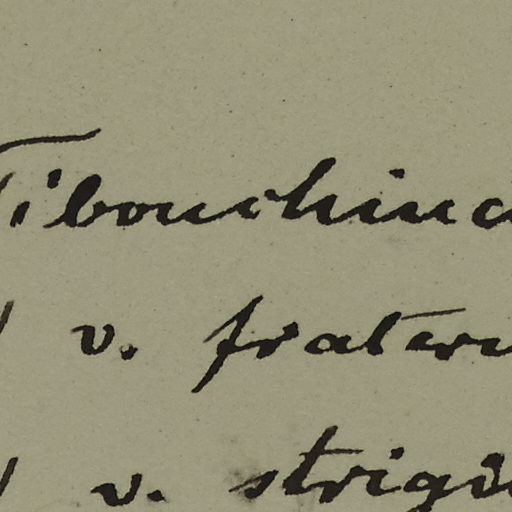 Tibouchina
v. fratern
v. strigi